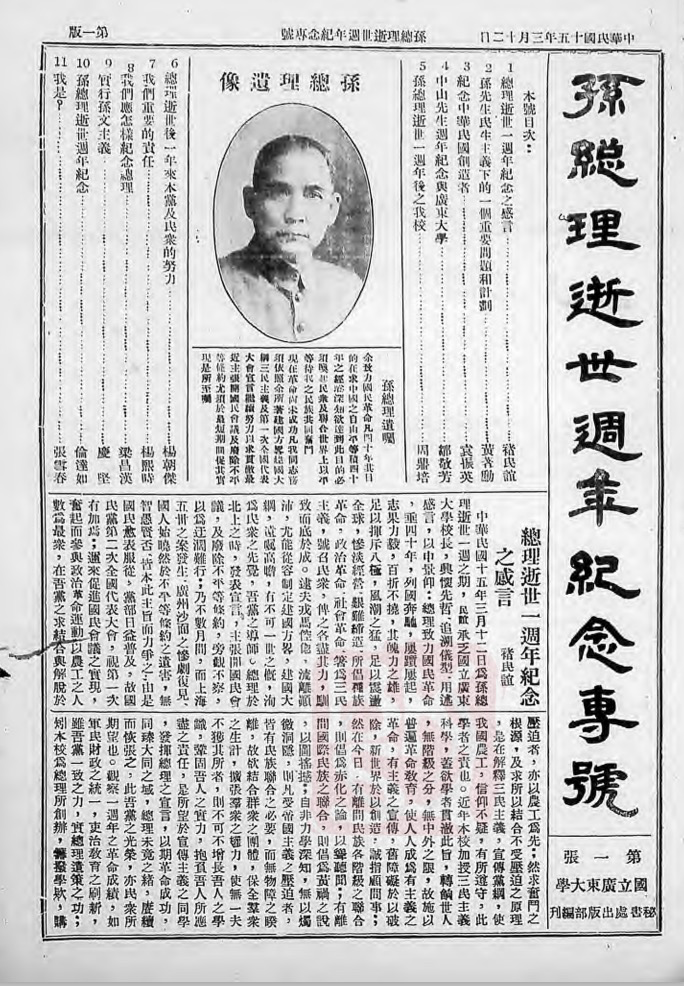 中華民國十五年三月十二日
孫總理逝世週年紀念專號
第一版
孫總理逝世週年紀念專號
第一張
國立廣東大學
秘書處出版部編刊
本號目次：
1 總理逝世一週年紀念之感言……褚民誼
2 孫先生民生主義下的一個重要問題和計劃……黃著勳
3 紀念中華民國創造者……袁振英
4 中山先生週年紀念與廣東大學……鄒敬芳
5 孫總理逝世一週年後之我校……周鼎培
孫總理遺像
孫總理遺囑
余致力國民革命凡四十年其目
的在求中國之自由平等積四十
年之經驗深知欲達到此目的必
須喚起民衆及聯合世界上以平
等待我之民族共同奮鬥
現在革命尚未成功凡我同志務
須依照余所著建國方畧建國大
綱三民主義及第一次全國代表
大會宣言繼續努力以求貫徹最
近主張開國民會議及廢除不平
等條約尤須於最短期間促其實
現是所至囑
6 總理逝世後一年來本黨及民衆的努力……楊朝傑
7 我們重要的責任……楊熙時
8 我們應怎樣紀念總理……梁昌漢
9 實行孫文主義……慶堅
10 孫總理逝世週年紀念……倫達如
11 我是？……張雲春
總理逝世一週年紀念
之感言
褚民誼
中華民國十五年三月十二日爲孫總
理逝世一週之期，民誼承乏國立廣東
大學校長，興懷先哲，追溯儀型，用述
感言，以申景仰：總理致力國民革命
，垂四十年，列國奔馳，屢躓屢起，
志果力毅，百折不撓，其魄力之雄，
足以揮斥八極，風潮之猛，足以震盪
全球，慘淡經營，艱難締造，所倡種族
革命，政治革命，社會革命，著爲三民
主義，號召民衆，俾之各盡其力，馴
致而底於成。逮夫戎馬倥傯，流離顛
沛，尤能從容制定建國方畧，建國大
綱，遠矚高瞻，有不可一世之慨，洵
爲民衆之先覺，吾黨之導師。總理於
北上之時，發表宣言，主張開國民會
議，及廢除不平等條約，旁觀不察，
以爲迂濶難行；乃不數月間，而上海
五卅之案發生，廣州沙面之慘劇復見，
國人始曉然於不平等條約之遺害，無
智愚賢否，皆本此主旨而力爭之；由是
國民黨表服從，黨部日益普及，故國
民黨第二次全國代表大會，視第一次
有加焉；邇來促進國民會議之實現，
奮起而參與政治革命運動以農工之人
數爲最衆，在吾黨之求結合與解脫於
壓迫者，亦以農工爲先；然求奮鬥之
根源，及求所以結合不受壓迫之原理
，是在解釋三民主義，宣傳黨綱，使
我國農工，信仰不疑，有所遵守，此
學者之責也。近年本校加授三民主義
科學，蓋欲學者貫澈此旨，轉餉世人
，無階級之分，無中外之限，故施以
普遍革命教育，使人人成爲有主義之
革命，有主義之宣傳，舊障礙於以破
除，新世界於以創造，誠指顧間事；
然在今日，有離間民族各階級之聯合
，則倡爲赤化之論，以聳聽聞；有離
間國際民族之聯合，則倡爲黃禍之說
，以圖搖撼；自非力學深知，無以燭
微洞隱，則凡受帝國主義之壓迫者，
皆有民族聯合之必要，而無物障之睽
離，故欲結合群衆之團體，保全羣衆
之生計，擴張羣衆之權力，使無一夫
不獲其所者，則不可不增長吾人之學
識，鞏固吾人之實力，抱負吾人所應
盡之責任，是所望於宣傳主義之同學
，發揮總理之宣言，以期革命成功，
同臻大同之域，總理未竟之緒，賡續
而恢張之，此吾黨之光榮，亦民衆所
期望也。觀察一週年之革命成績，如
軍民財政之統一，吏治教育之刷新，
雖吾黨一致之力，實總理遺策之功；
矧本校爲總理所創辦，